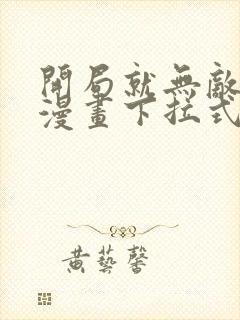 開局就無敵
漫畫下拉式
黃藝馨